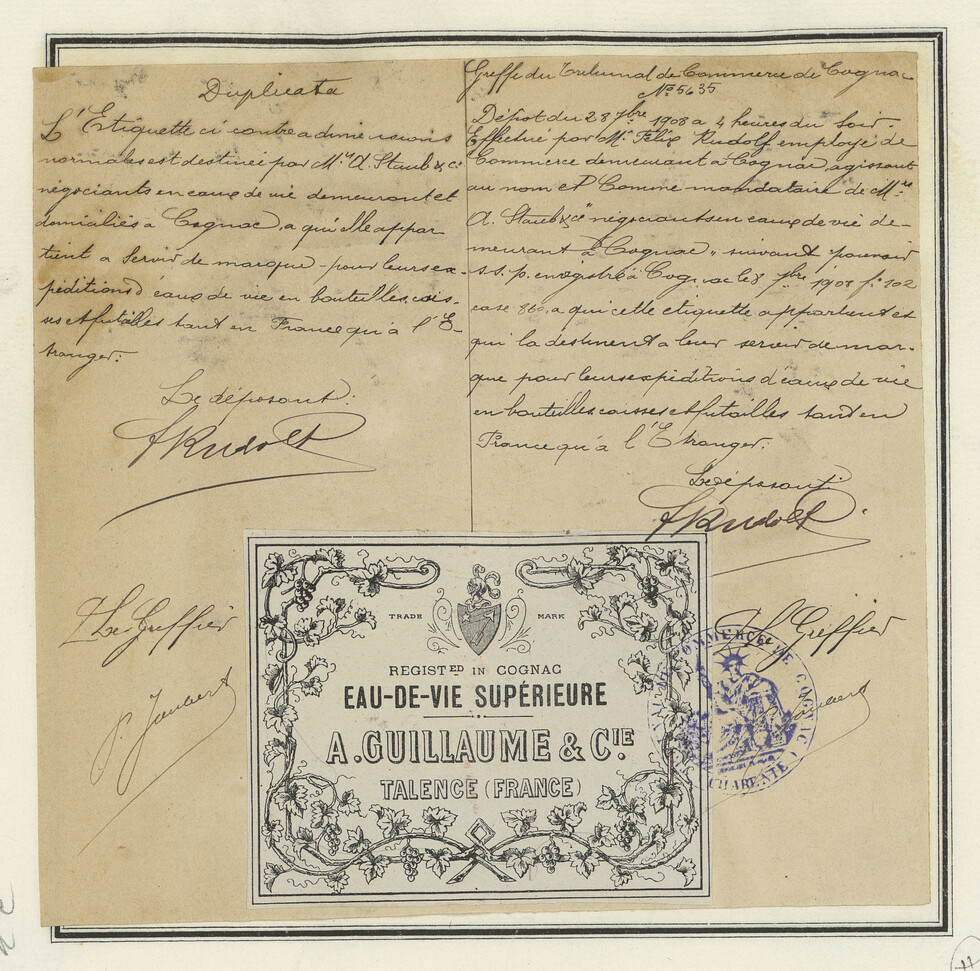 Duplicata
L'Etiquette ci contre a dimensions
normales est destinée par Mrs A. Staub & Cie
négociants en eaux de vie demeurant et
domiciliés à Cognac, a qui elle appar
tient a servir de marque pour leurs ex-
péditions d'eaux de vie en bouteilles, cais-
ses et futailles tant en France qu'à l'E-
tranger.
Le déposant:
F Rudolf
Le Greffier
Greffe du Tribunal de Commerce de Cognac
No 5635
Dépot du 28 7bre 1908 a 4 heures du soir.
Effectué par Mr Félix Rudolf, employé de
Commerce demeurant à Cognac, agissant
au nom et Comme mandataire de Mrs
A. Staub & Cie négociants en eaux de vie de-
meurant à Cognac, suivant pouvoir
s.s.p. enregistré à Cognac le 8 7bre 1908 fo 102
case 860, a qui cette etiquette appartient et
qui la destinent a leur servir de mar-
que pour leurs expéditions d'eaux de vie
en bouteilles caisses et futailles tant en
France qu'à l'Etranger.
Le déposant:
F Rudolf
Le Greffier
TRADE MARK
REGISTED IN COGNAC
EAU-DE-VIE SUPÉRIEURE
A. GUILLAUME & CIE.
TALENCE (FRANCE)
COMMERCE DE COGNAC
CHARENTE